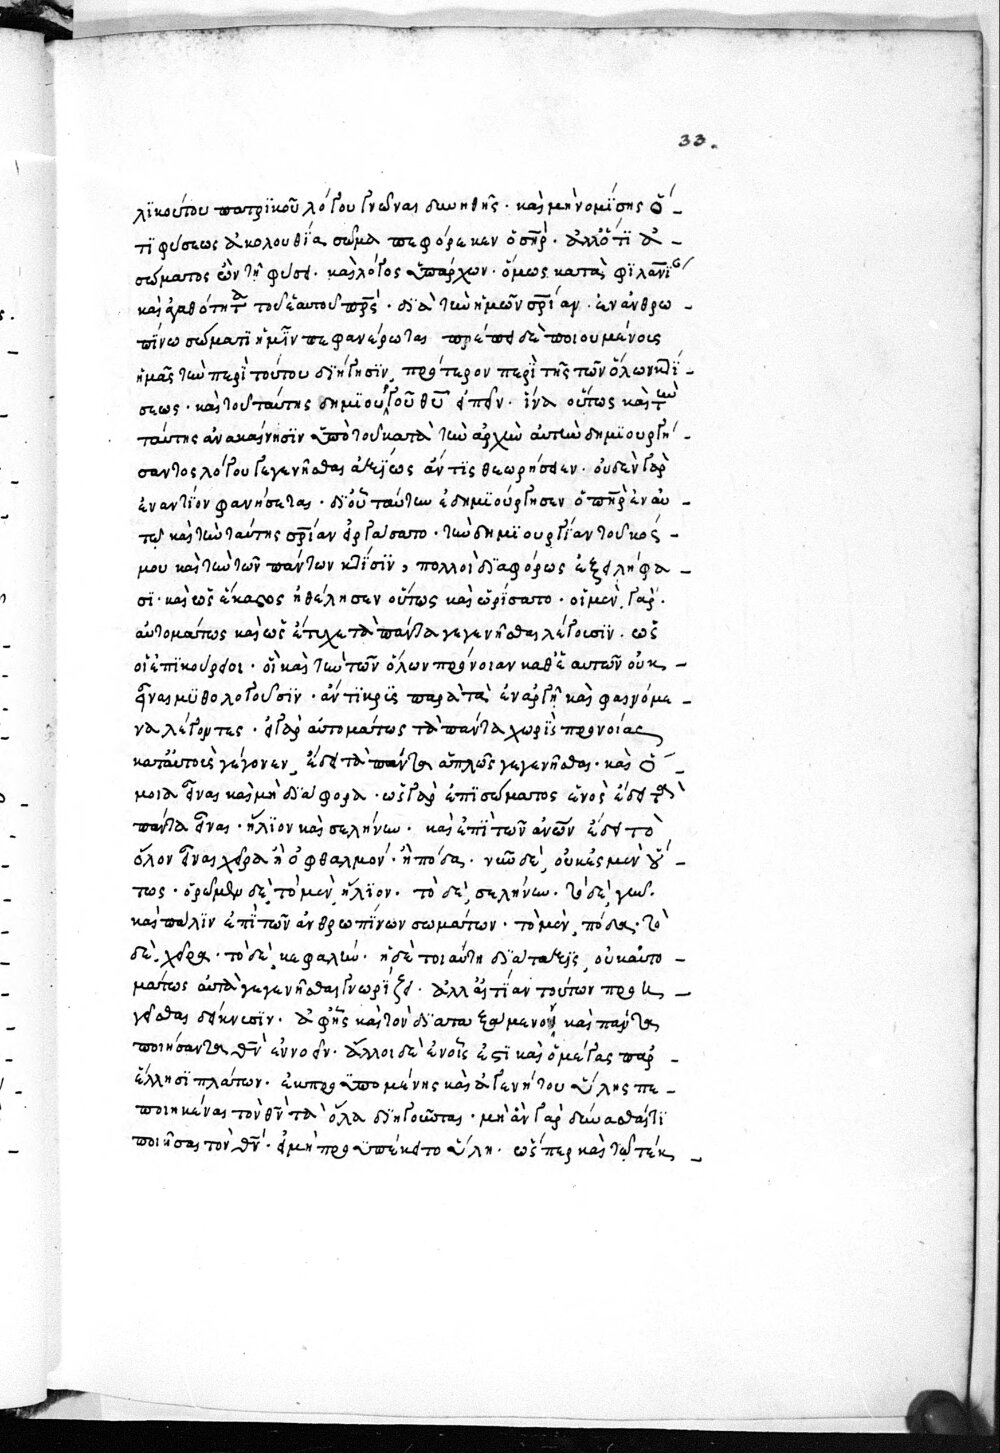 33.
λϊκούτου πατρϊκοῦ λόγου γνῶναι δυνηθῆς· καὶ μὴ νομίσης ὅ –
τι φύσεως ἀκολουθία σῶμα πεφόρεκεν ὁ σηρ· ἀλλ' ὅτι ἀ –
σώματος ὢν τῆ φύσει· καὶ λόγος ὑπάρχων· ὅμως κατὰ φϊλανϊ
καὶ ἀγαθότητα τοῦ ἑαυτοῦ πρς· διὰ τὴν ἡμῶν σρίαν· ἐν ἀνθρω
πίνω σώματι ἡμῖν πεφανέρωται πρέπει δὲ ποιουμένοις
ἡμᾶς τὴν περὶ τούτου διήγησιν, πρότερον περὶ τῆς τῶν ὅλων κτί –
σεως· καὶ τοῦ ταύτης δημιουργοῦ θυ εἰπεῖν· ἵνα οὕτως καὶ τὴν
ταύτης ἀνακαίνησιν ὑπὸ τοῦ κατὰ τὴν ἀρχὴν αὐτὴν δημιουργή –
σαντος λόγου γεγενῆσθαι ἀξίως ἄν τις θεωρήσειεν· οὐδὲν γὰρ
ἐναντίον φανήσεται· δι' οὗ ταύτην ἐδημιούργησεν ὁ πηρ ἐν αὐ –
τῶ καὶ τὴν ταύτης σρίαν εἰργάσατο· τὴν δημιουργίαν τοῦ κός –
μου καὶ τὴν τῶν πάντων κτίσιν, πολλοὶ διαφόρως ἐξειλήφα –
σι· καὶ ὡς ἕκαστος ἠθέλησεν οὕτως καὶ ὡρίσατο· οἱ μὲν γὰρ·
αὐτομάτως καὶ ὡς ἔτυχε τὰ πάντα γεγενῆσθαι λέγουσιν· ὡς
οἱ ἐπικούρειοι· οἳ καὶ τὴν τῶν ὅλων πρόνοιαν καθ' ἑαυτῶν οὐκ –
εἶναι μυθολογοῦσιν· ἄντικρϊς παρὰ τὰ ἐναργῆ καὶ φαινόμε –
να λέγοντες· εἰ γὰρ αὐτομάτως τὰ πάντα χωρὶς προνοίας
κατ' αὐτοὺς γέγονεν, ἔδει τὰ πάντα ἁπλῶς γεγενῆσθαι· καὶ ὅ –
μοια εἶναι καὶ μὴ διάφορα· ὡς γὰρ ἐπὶ σώματος ἑνὸς ἔδει τὰ
πάντα εἶναι· ἥλιον καὶ σελήνην· καὶ ἐπὶ τῶν ἀνων ἔδει τὸ
ὅλον εἶναι χεῖρα ἢ ὀφθαλμόν· ἢ πόδα· νῦν δὲ, οὐκ ἔς μὲν οὕ –
τως· ὁρῶμεν δὲ, τὸ μὲν ἥλιον· τὸ δὲ, σελήνην· τὸ δὲ, γῆν·
καὶ πάλιν ἐπὶ τῶν ἀνθρωπίνων σωμάτων· τὸ μὲν, πόδα· τὸ
δὲ, χεῖρα· τὸ δὲ, κεφαλήν· ἡ δὲ τοιαύτη διάταξις, οὐκ αὐτο –
μάτως αὐτὰ γεγενῆσθαι γνωρίζει· ἀλλ' αἰτίαν τούτων προη –
γεῖσθαι δείκνυσιν· ἀφ' ἧς καὶ τὸν διαταξάμενον καὶ πάντα
ποιήσαντα θν ἐννοεῖν· ἄλλοι δὲ ἐν οἷς ἐστὶ καὶ ὁ μέγας παρ' –
ἕλλησι πλάτων· ἐκ προϋπομένης καὶ ἀγενήτου ὕλης πε –
ποιηκέναι τὸν θν τὰ ὅλα διηγοῦνται· μὴ ἂν γὰρ δύνασθαί τι
ποιῆσαι τὸν θν· εἰ μὴ προϋπέκειτο ὕλη· ὥσπερ καὶ τῶ τέκ –